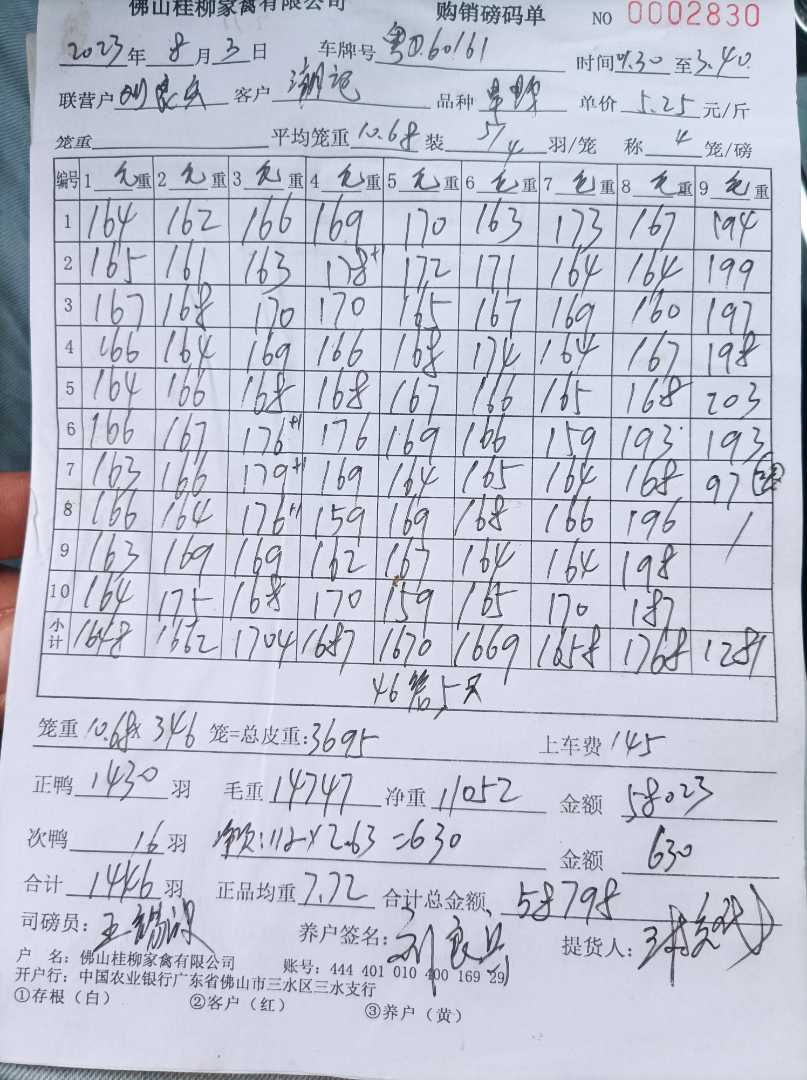 佛山桂柳家禽有限公司 购销磅码单 NO 0002830
2023年 8月 3日 车牌号 粤 60161 时间 7.30 至 3.40
联营户 客户 品种 单价 5.25 元/斤
笼重 平均笼重 10.68 装 5/4 羽/笼 称 4 笼/磅
编号 1 毛重 2 毛重 3 毛重 4 毛重 5 毛重 6 毛重 7 毛重 8 毛重 9 毛重
1 164 162 166 169 170 163 173 167 194
2 165 161 163 178+1 172 171 164 164 199
3 167 168 170 170 165 167 169 160 197
4 166 164 169 166 168 174 164 167 198
5 164 166 168 168 167 166 165 168 203
6 166 167 176+1 176 169 166 159 193 193
7 163 166 179+1 169 164 165 164 168 97
8 166 164 176+1 159 169 168 166 196 /
9 163 169 169 162 167 164 164 198
10 164 175 168 170 159 165 170 187
小计 1648 1662 1704 1687 1670 1669 1658 1768 1281
46笼5只
笼重 10.68× 346 笼=总皮重:3695 上车费 145
正鸭 1430 羽 毛重 14747 净重 11052 金额 58023
次鸭 16 羽 :112×2.63=630 金额 630
合计 1446 羽 正品均重 7.72 合计总金额 58798
司磅员: 王 养户签名: 刘良 提货人:
户 名: 佛山桂柳家禽有限公司 账号: 444 401 010 400 169 29
开户行: 中国农业银行广东省佛山市三水区三水支行
①存根(白) ②客户(红) ③养户(黄)